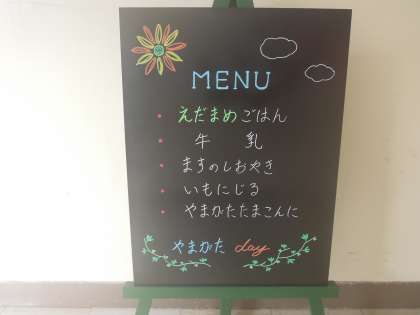 MENU
えだまめごはん
牛乳
ますのしおやき
いもにじる
やまがたたまこんに
やまがた day